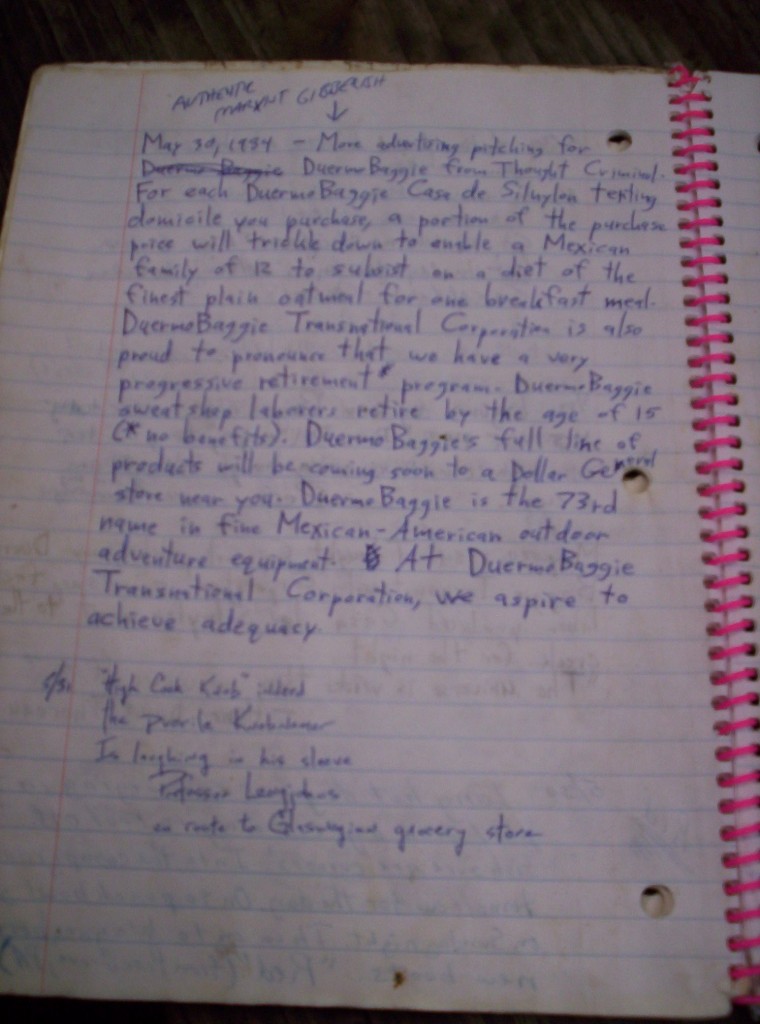 AUTHENTIC
MARXIST GIBBERISH
May 30, 1984 - More advertising pitching for
Duermo Baggie DuermoBaggie from Thought Criminal.
For each DuermoBaggie Casa de Silnylon tenting
domicile you purchase, a portion of the purchase
price will trickle down to enable a Mexican
family of 12 to subsist on a diet of the
finest plain oatmeal for one breakfast meal.
DuermoBaggie Transnational Corporation is also
proud to pronounce that we have a very
progressive retirement* program. DuermoBaggie
sweatshop laborers retire by the age of 15
(* no benefits). DuermoBaggie's full line of
products will be coming soon to a Dollar General
store near you. DuermoBaggie is the 73rd
name in fine Mexican-American outdoor
adventure equipment. At DuermoBaggie
Transnational Corporation, we aspire to
achieve adequacy.
5/31 "High Cook Knob" indeed
the puerile
Is laughing in his sleeve
Professor
en route to Glaswegian grocery store